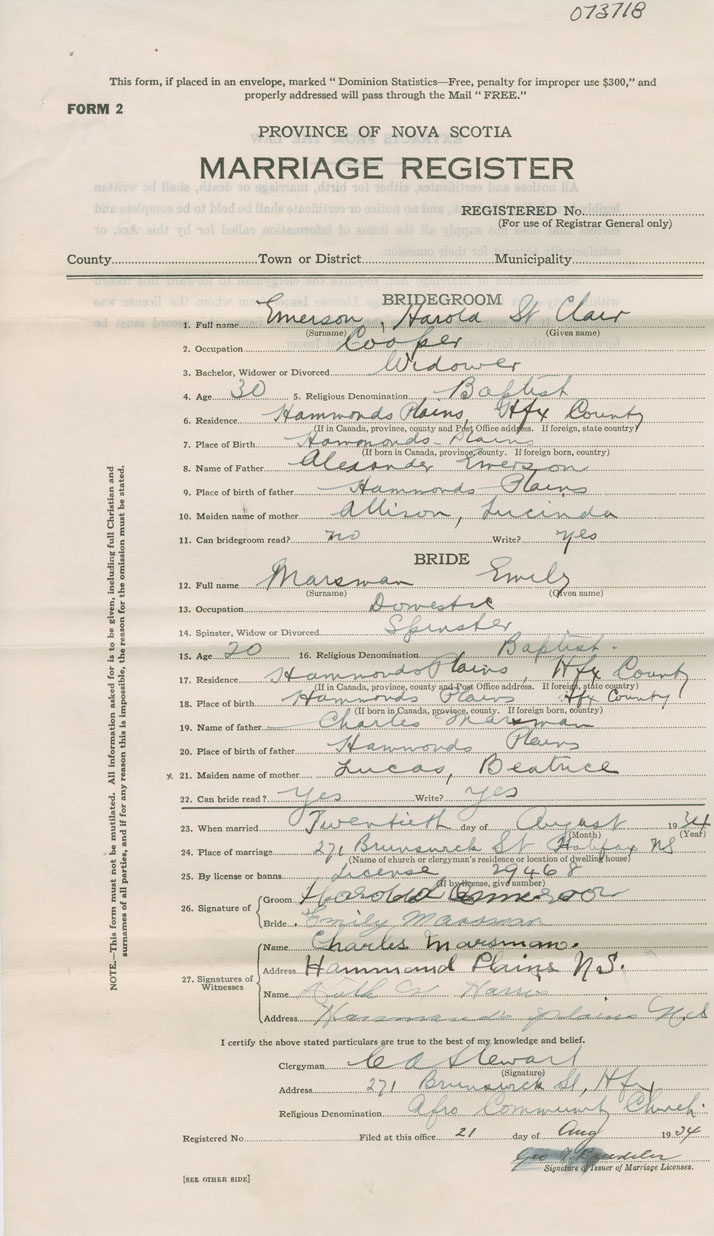 073718
This form, if placed in an envelope, marked " Dominion Statistics—Free, penalty for improper use $300," and
properly addressed will pass through the Mail " FREE."
FORM 2
PROVINCE OF NOVA SCOTIA
MARRIAGE REGISTER
REGISTERED No.
(For use of Registrar General only)
County Town or District Municipality
BRIDEGROOM
1. Full name Emerson, Harold St Clair
(Surname) (Given name)
2. Occupation Cooper
3. Bachelor, Widower or Divorced Widower
4. Age 30 5. Religious Denomination Baptist
6. Residence Hammonds Plains, Hfx County
(If in Canada, province, county and Post Office address. If foreign, state country)
7. Place of Birth Hammonds Plains
(If born in Canada, province, county. If foreign born, country)
8. Name of Father Alexander Emerson
9. Place of birth of father Hammonds Plains
10. Maiden name of mother Allison, Lucinda
11. Can bridegroom read? no Write? yes
BRIDE
12. Full name Marsman Emily
(Surname) (Given name)
13. Occupation Domestic
14. Spinster, Widow or Divorced Spinster
15. Age 20 16. Religious Denomination Baptist.
17. Residence Hammonds Plains, Hfx County
(If in Canada, province, county and Post Office address. If foreign, state country)
18. Place of birth Hammonds Plains Hfx County
(If born in Canada, province, county. If foreign born, country)
19. Name of father Charles Marsman
20. Place of birth of father Hammonds Plains
x 21. Maiden name of mother Lucas, Beatrice
22. Can bride read? yes Write? yes
23. When married Twentieth day of August 1934
(Month) (Year)
24. Place of marriage 271 Brunswick St Halifax NS
(Name of church or clergyman's residence or location of dwelling house)
25. By license or banns License 29468
(If by license, give number)
26. Signature of Groom Harold Emerson
Bride Emily Marsman
27. Signatures of Witnesses
Name Charles Marsman.
Address Hammond Plains N.S.
Name Ruth Harris
Address Hammonds plains N.S
I certify the above stated particulars are true to the best of my knowledge and belief.
Clergyman C A Stewart
(Signature)
Address 271 Brunswick St, Hfx
Religious Denomination Afro Community Church.
Registered No Filed at this office 21 day of Aug 1934
Geo
Signature of Issuer of Marriage Licenses.
[SEE OTHER SIDE]
NOTE.—This form must not be mutilated. All information asked for is to be given, including full Christian and
surnames of all parties, and if for any reason this is impossible, the reason for the omission must be stated.